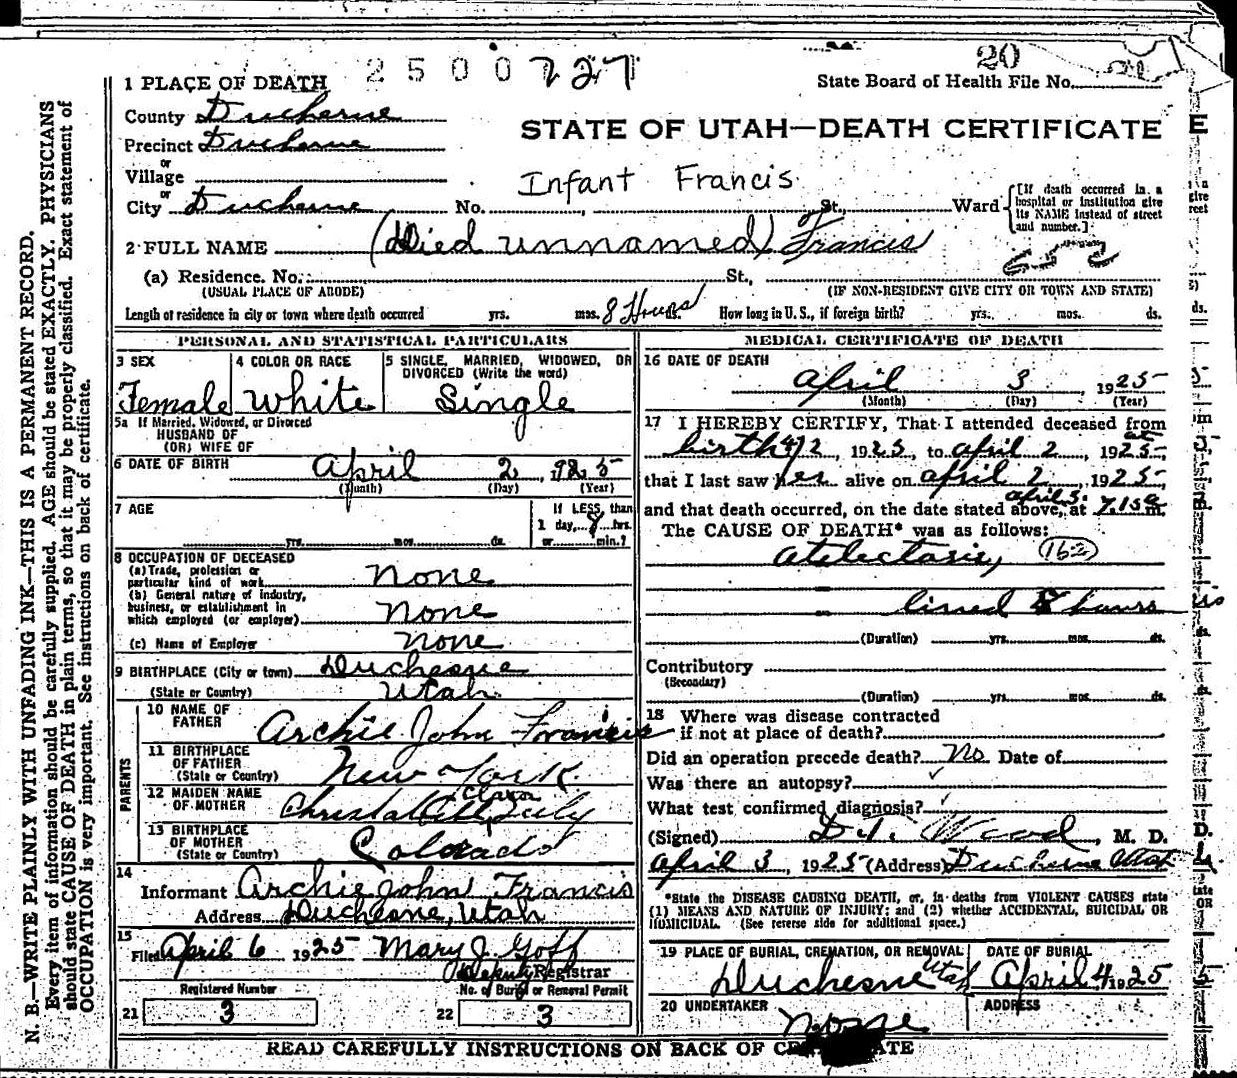 2500727
20
1 PLACE OF DEATH
State Board of Health File No.
County Duchesne
STATE OF UTAH—DEATH CERTIFICATE
Precinct Duchesne
or
Village
Infant Francis
or
City Duchesne No. St., Ward
[If death occurred in a hospital or institution give its NAME instead of street and number.]
2 FULL NAME (Died unnamed) of Francis
(a) Residence. No. St.,
(USUAL PLACE OF ABODE) (IF NON-RESIDENT GIVE CITY OR TOWN AND STATE)
Length of residence in city or town where death occurred yrs. mos. 8 Hours ds. How long in U. S., if foreign birth? yrs. mos. ds.
PERSONAL AND STATISTICAL PARTICULARS
3 SEX
Female
4 COLOR OR RACE
White
5 SINGLE, MARRIED, WIDOWED, OR
DIVORCED (Write the word)
Single
5a If Married, Widowed, or Divorced
HUSBAND OF
(OR) WIFE OF
6 DATE OF BIRTH April 2, 1925
(Month) (Day) (Year)
7 AGE
yrs. mos. ds.
If LESS than
1 day, 8 hrs.
or min.?
8 OCCUPATION OF DECEASED
(a) Trade, profession or
particular kind of work None
(b) General nature of industry,
business, or establishment in
which employed (or employer) None
(c) Name of Employer None
9 BIRTHPLACE (City or town) Duchesne
(State or Country) Utah
PARENTS
10 NAME OF
FATHER Archie John Francis
11 BIRTHPLACE
OF FATHER
(State or Country) New York
12 MAIDEN NAME
OF MOTHER
13 BIRTHPLACE
OF MOTHER
(State or Country) Colorado
14
Informant Archie John Francis
Address Duchesne, Utah
15
Filed April 6 1925 Mary J. Goff
Deputy Registrar
Registered Number No. of Burial or Removal Permit
21 3 22 3
MEDICAL CERTIFICATE OF DEATH
16 DATE OF DEATH
April 3 1925
(Month) (Day) (Year)
17 I HEREBY CERTIFY, That I attended deceased from
birth 4/2 1925, to April 2, 1925,
that I last saw her alive on April 2, 1925,
and that death occurred, on the date stated above, at April 3. 7.15 a m.
The CAUSE OF DEATH* was as follows:
Atelectasis, (162)
lived 8 hours
(Duration) yrs. mos. ds.
Contributory
(Secondary)
(Duration) yrs. mos. ds.
18 Where was disease contracted
if not at place of death?
Did an operation precede death? No Date of
Was there an autopsy? ✓
What test confirmed diagnosis? ✓
(Signed) Wood, M. D.
April 3, 1925 (Address) Duchesne Utah
*State the DISEASE CAUSING DEATH, or, in deaths from VIOLENT CAUSES state
(1) MEANS AND NATURE OF INJURY; and (2) whether ACCIDENTAL, SUICIDAL OR
HOMICIDAL. (See reverse side for additional space.)
19 PLACE OF BURIAL, CREMATION, OR REMOVAL
Duchesne Utah
DATE OF BURIAL
April 4, 1925
20 UNDERTAKER
None
ADDRESS
READ CAREFULLY INSTRUCTIONS ON BACK OF CERTIFICATE
N. B.—WRITE PLAINLY WITH UNFADING INK—THIS IS A PERMANENT RECORD.
Every item of information should be carefully supplied. AGE should be stated EXACTLY. PHYSICIANS
should state CAUSE OF DEATH in plain terms, so that it may be properly classified. Exact statement of
OCCUPATION is very important. See instructions on back of certificate.